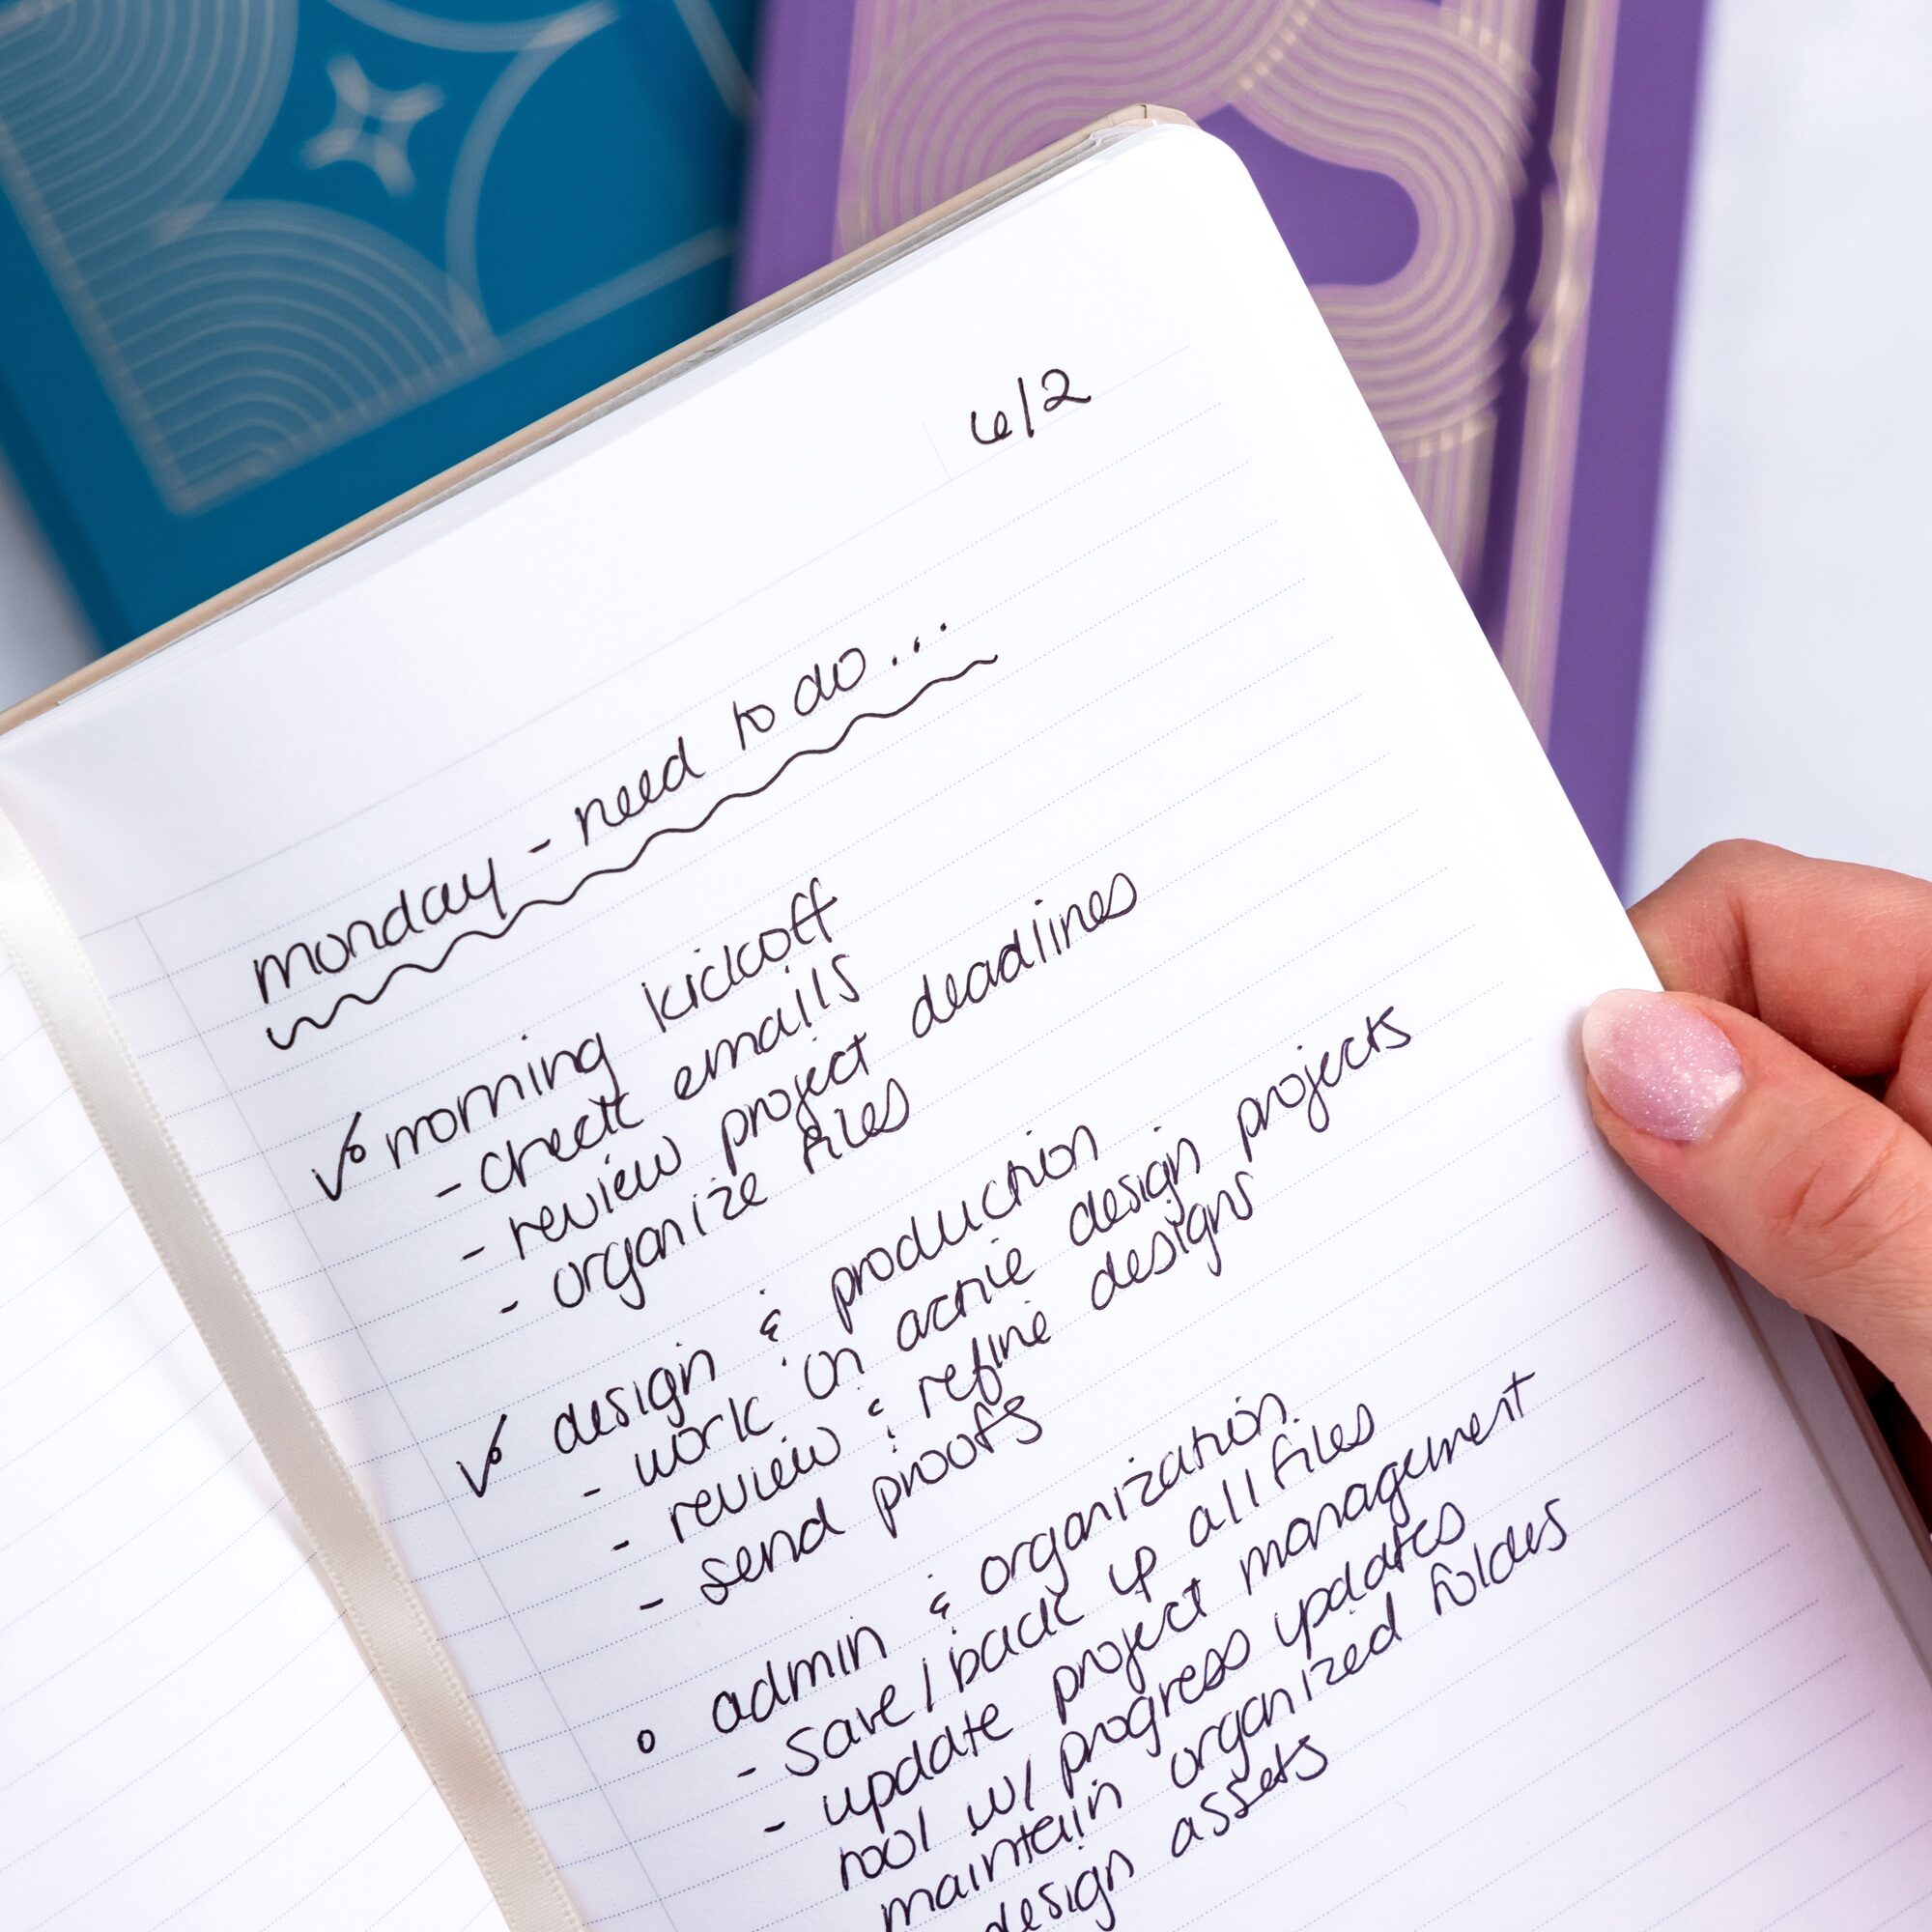 6/2
monday - need to do...
✓o morning kickoff
- check emails
- review project deadlines
- organize files
✓o design & production
- work on active design projects
- review & refine designs
- send proofs
o admin & organization
- save / back up all files
- update project management
tool w/ progress updates
maintain organized folders
design assets